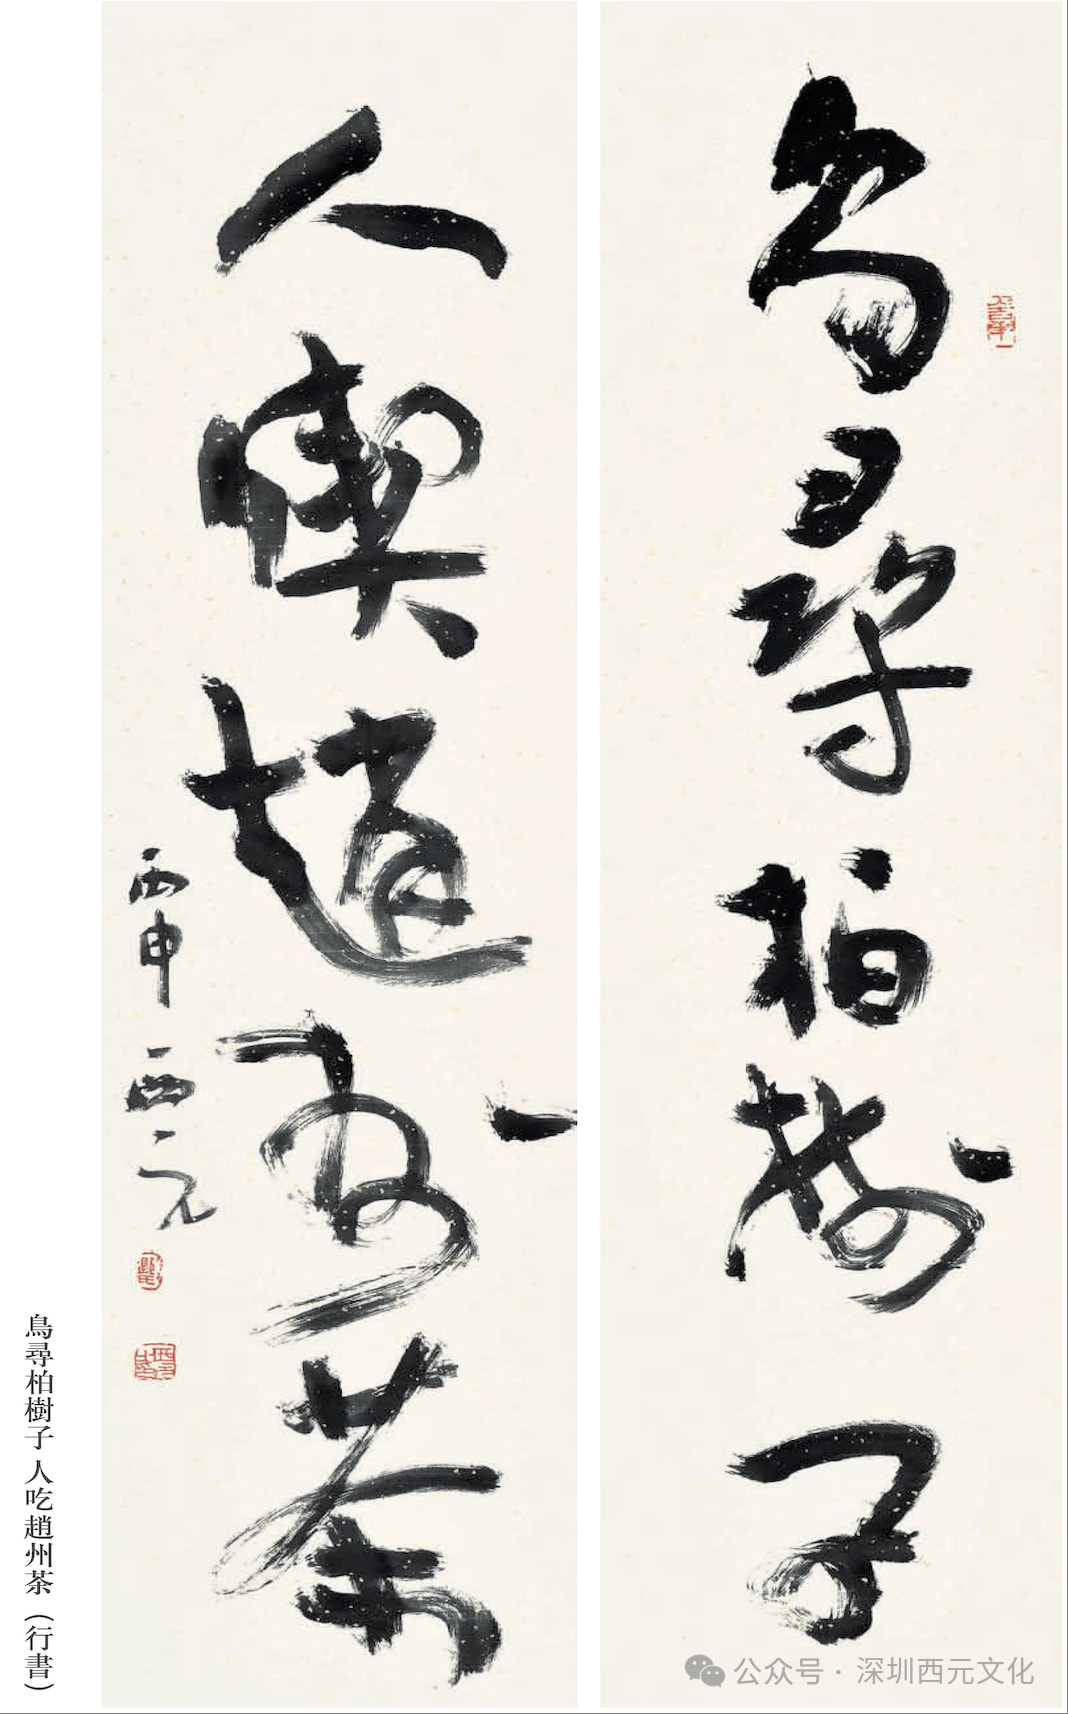 鳥尋柏樹子
人喫趙州茶
丙申 西元
鳥尋柏樹子 人吃趙州茶（行書）
公众号 · 深圳西元文化